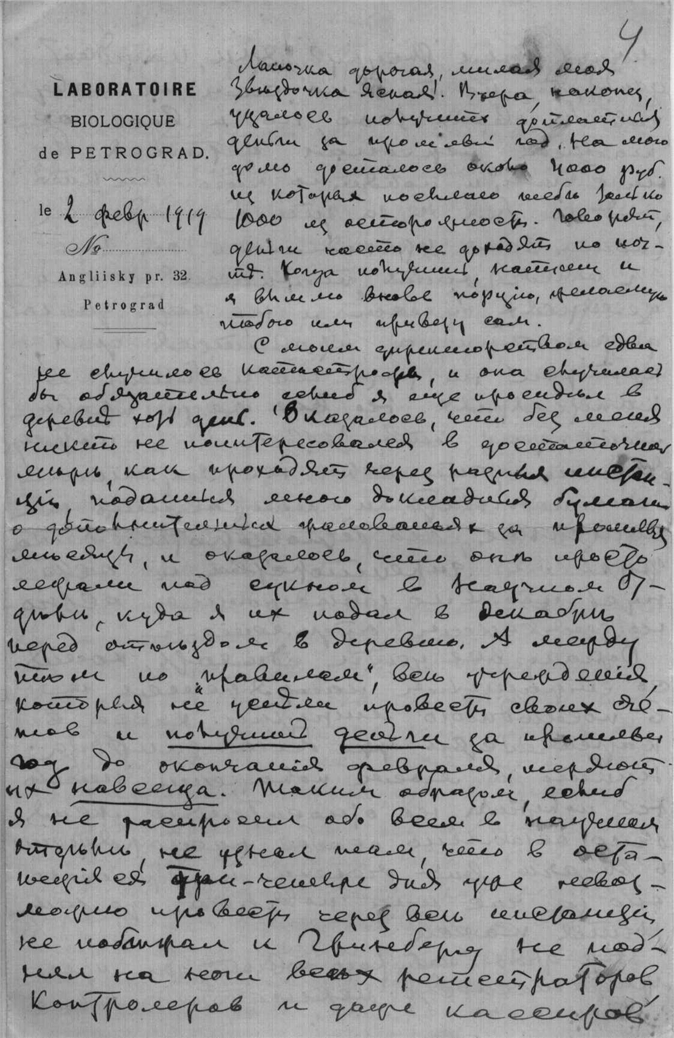 4
LABORATOIRE
BIOLOGIQUE
de PETROGRAD.
le 2 февр 1919
№
Angliisky pr. 32.
Petrograd
Лапочка дорогая, милая моя
Звѣздочка ясная! Вчера, наконец,
удалось получить
деньги за прошлый год. На мою
долю досталось около 4000 руб.
из которых посылаю тебѣ только
1000 из осторожности. Говорят,
деньги часто не доходят по поч-
тѣ. Когда получишь, напиши и
я вышлю вновь порцію, желаемую
тобою или привезу сам.
С моим директорством едва
не случилось катастрофы, и она случилась
бы обязательно еслиб я еще просидѣл в
деревнѣ хоть день. Оказалось, что без меня
никто не поинтересовался в достаточной
мѣрѣ, как проходят через разныя инстан-
ціи, поданныя мною докладныя бумаги
о дополнительных за прошлые
мѣсяцы, и оказалось, что онѣ просто
лежали под сукном в Научном От-
дѣлѣ, куда я их подал в декабрѣ
перед отъѣздом в деревню. А между
тѣм по "правилам", всѣ учрежденія,
которыя не успѣли провести своих сче-
тов и получить деньги за прошлый
год до окончанія февраля, теряют
их навсегда. Таким образом, еслиб
я не распросил обо всем в научном
отдѣлѣ, не узнал там, что в оста-
ющіеся три-четыре дня уже невоз-
можно провести через всѣ инстанціи,
не побѣжал к Гринбергу не под-
нял на ноги всѣх регистраторов,
контролеров и даже кассиров